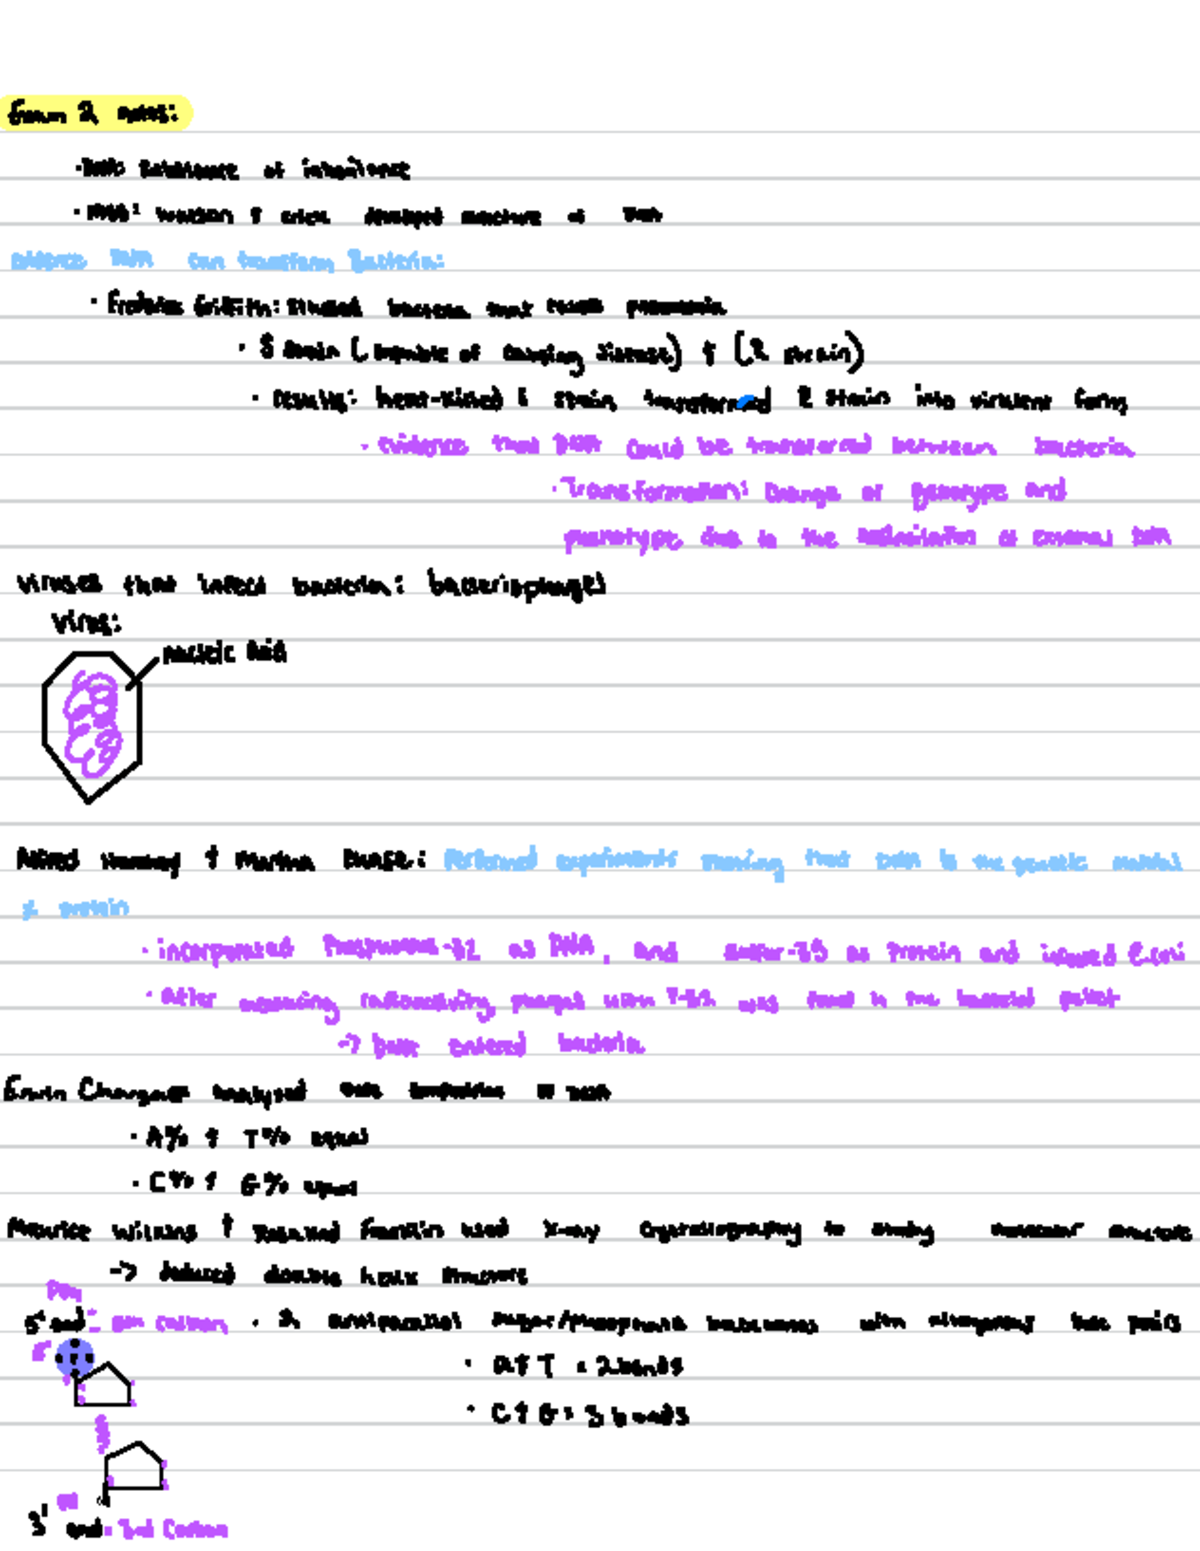 Exam 2 notes:
· DNA: Substance of inheritance
· Watson & Crick developed structure of DNA
evidence DNA can transform Bacteria:
· Griffith: studied bacteria that cause pneumonia
· S strain (capable of causing disease) & (R strain)
· results: heat-killed S strain transformed R strain into virulent form
· evidence that DNA could be transferred between bacteria
· Transformation: change of genotype and
phenotype due to the assimilation of external DNA
Viruses that infect bacteria: bacteriophages
Virus:
nucleic acid
Alfred Hershey & Martha Chase: Performed experiments showing that DNA is the genetic material
protein
· incorporated Phosphorus-32 as DNA, and sulfur-35 as Protein and infected E.coli
· After measuring radioactivity, phages with P-32 was found in the bacterial pellet
-> DNA entered bacteria
Erwin Chargaff analyzed base of DNA
· A% & T% equal
· C% & G% equal
Maurice Wilkins & Rosalind Franklin used X-ray Crystallography to study molecular structure
-> deduced double helix structure
5' end : 5th carbon · 2 antiparallel sugar/phosphate backbones with base pairs
· A & T = 2 bonds
· C & G = 3 bonds
3' end · 3rd Carbon